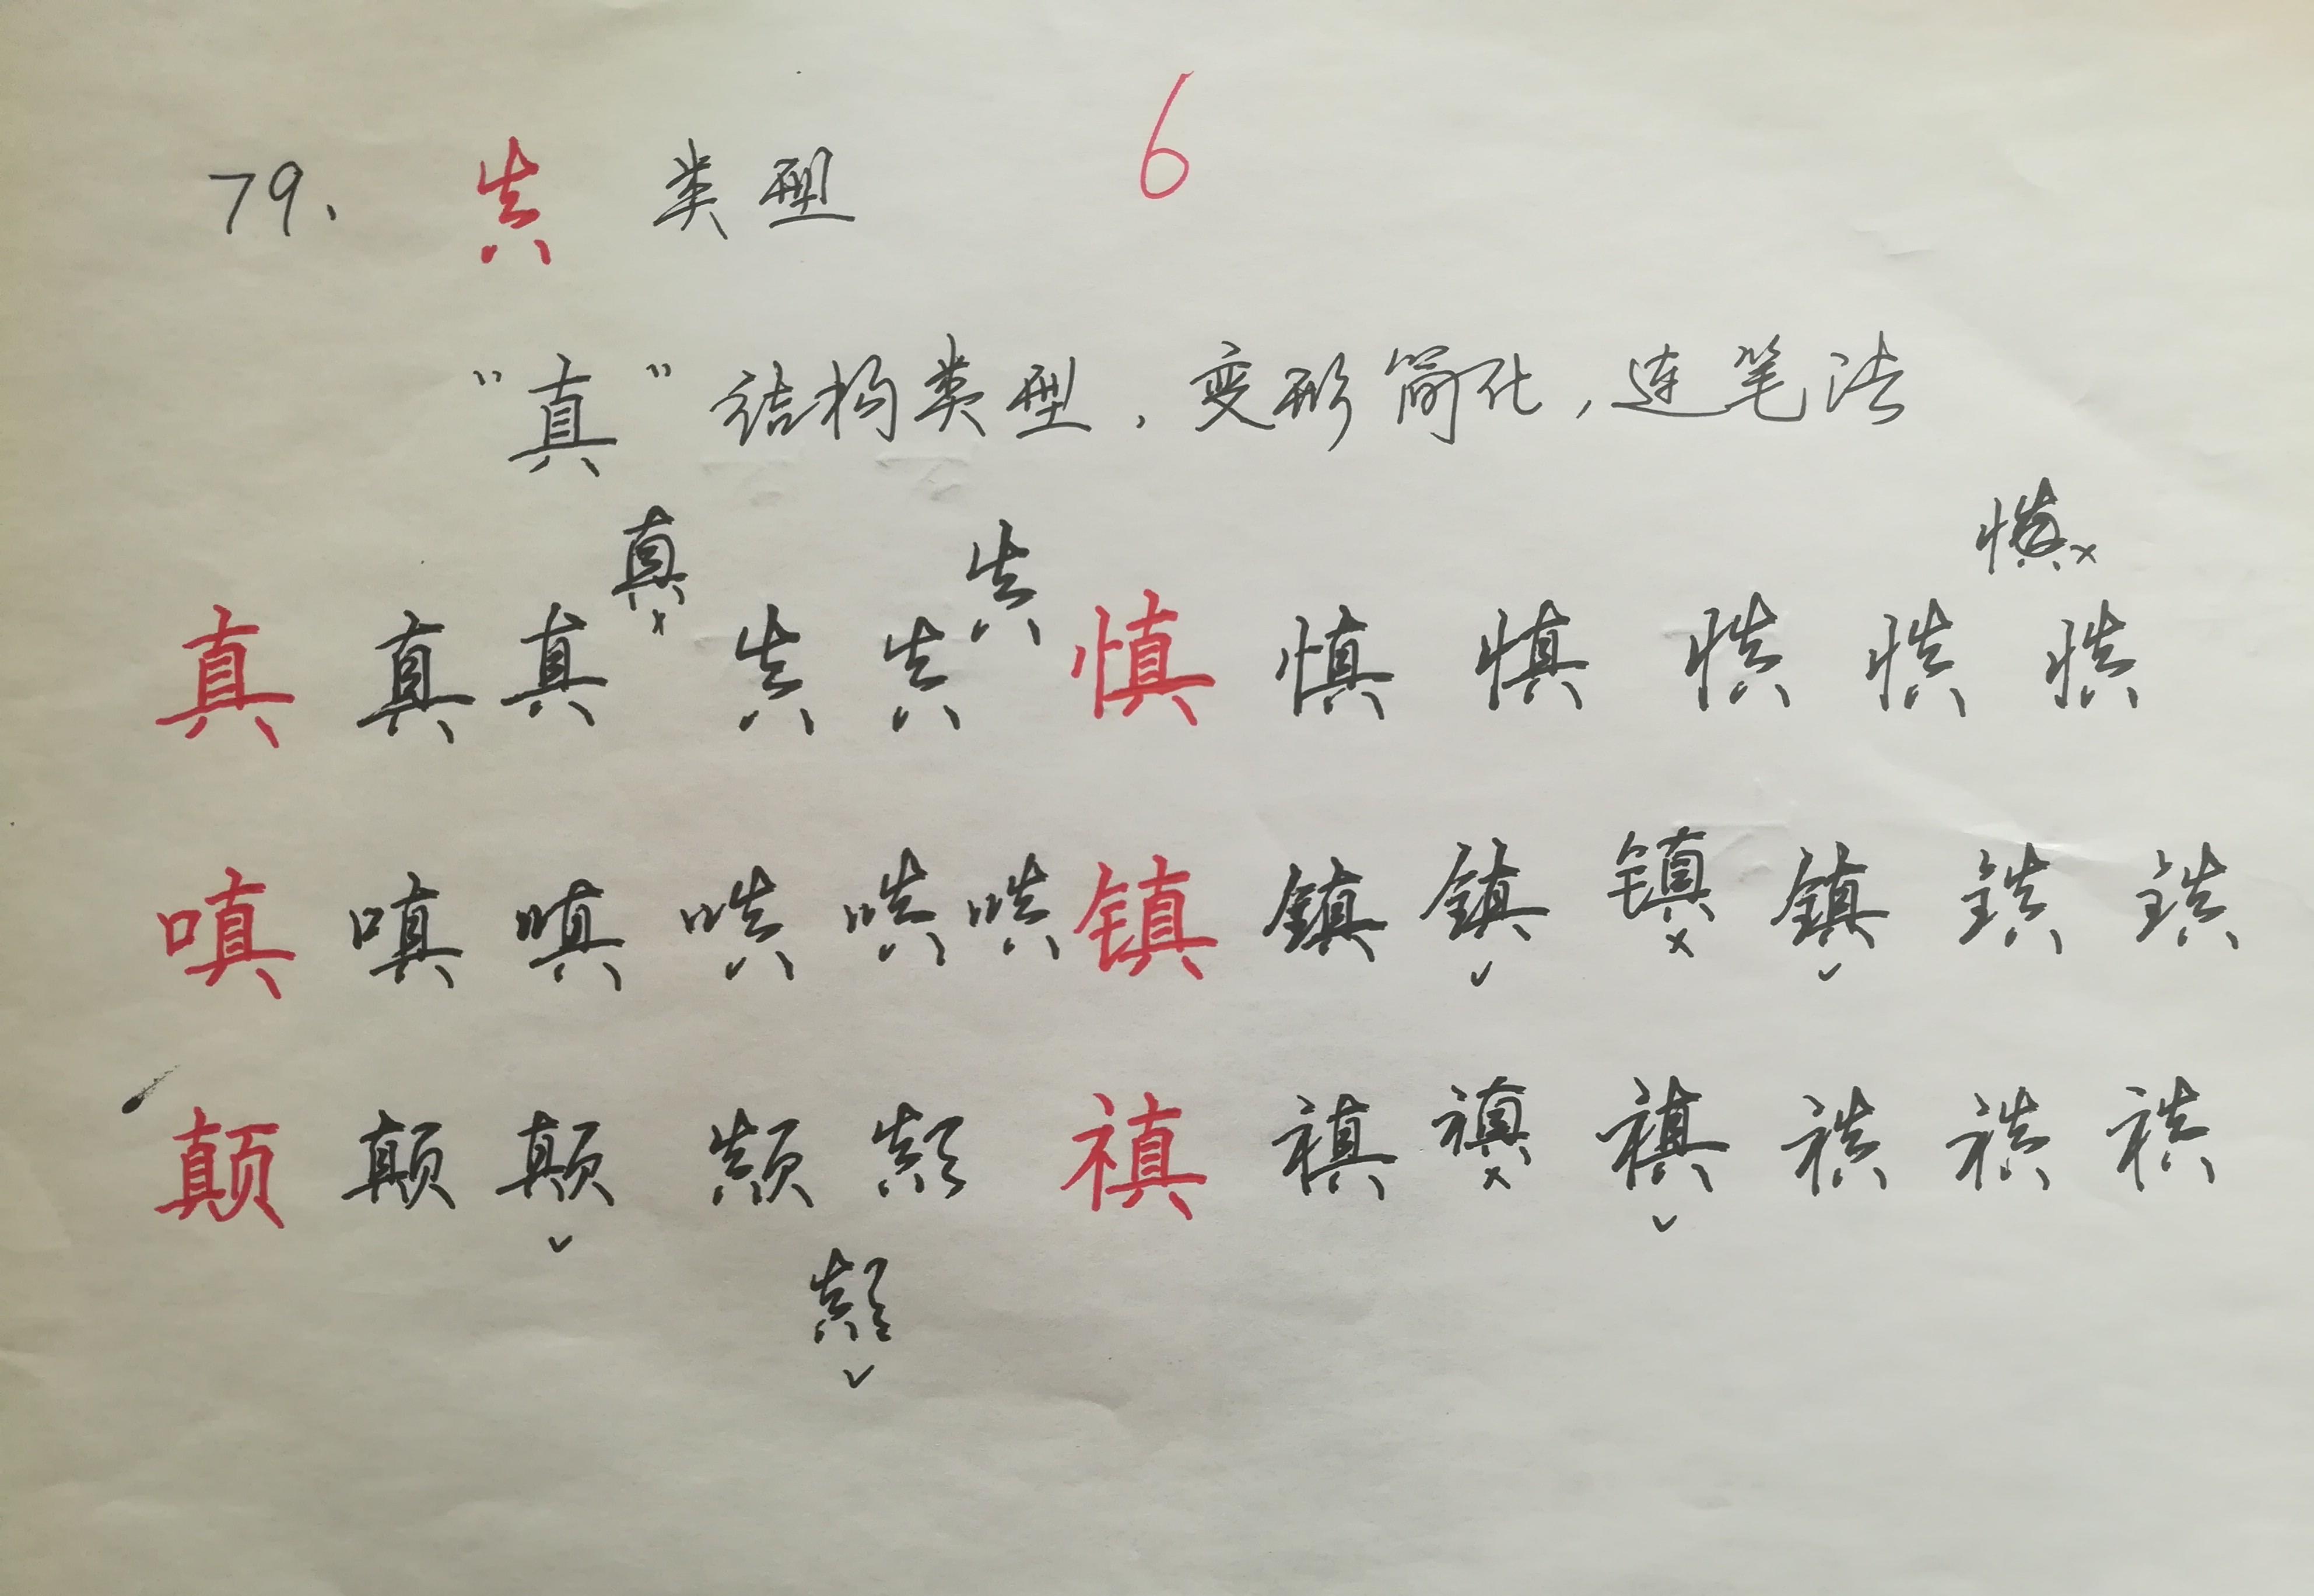 79、 真 类型 6
“真”结构类型,变形简化,连笔法
真 × 真 慎 ×
真 真 真 真 真 慎 慎 慎 慎 慎 慎
嗔 嗔 嗔 嗔 嗔 嗔 镇 镇 镇 ✓ 镇 × 镇 ✓ 镇 镇
颠 颠 颠 ✓ 颠 颠 禛 禛 禛 × 禛 ✓ 禛 禛 禛
颠 ✓